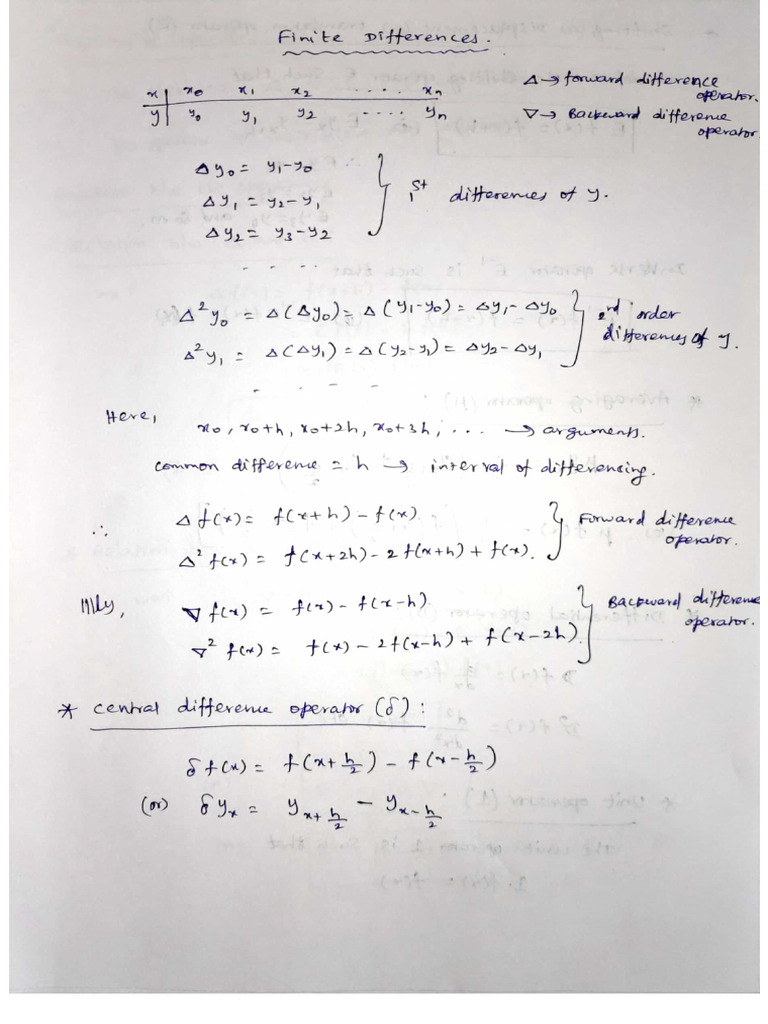 Finite Differences.
x | x₀ x₁ x₂ .... xₙ
y | y₀ y₁ y₂ .... yₙ
Δ → forward difference operator.
∇ → Backward difference operator.
Δy₀ = y₁-y₀
Δy₁ = y₂-y₁
Δy₂ = y₃-y₂
1st differences of y.
....
Δ²y₀ = Δ(Δy₀) = Δ(y₁-y₀) = Δy₁-Δy₀
Δ²y₁ = Δ(Δy₁) = Δ(y₂-y₁) = Δy₂-Δy₁
2nd order
differences of y.
....
Here,
x₀, x₀+h, x₀+2h, x₀+3h, ... → arguments.
common difference = h → interval of differencing.
∴ Δf(x) = f(x+h) - f(x)
Δ²f(x) = f(x+2h) - 2f(x+h) + f(x).
Forward difference
operator.
|||ly, ∇f(x) = f(x) - f(x-h)
∇²f(x) = f(x) - 2f(x-h) + f(x-2h).
Backward difference
operator.
* central difference operator (δ):
δf(x) = f(x+h/2) - f(x-h/2)
(or) δyₓ = y_{x+h/2} - y_{x-h/2}